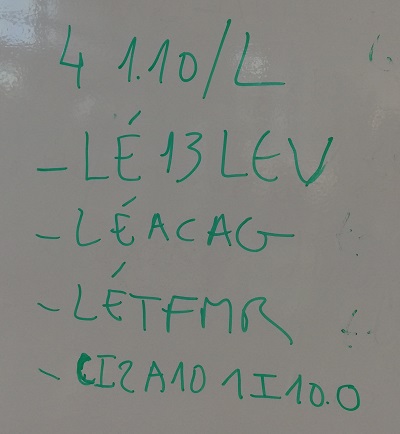 4 1.10/L
- LÉ 13 LEV
- LÉACAG
- LÉTFMR
- CI2A10 1I10.0